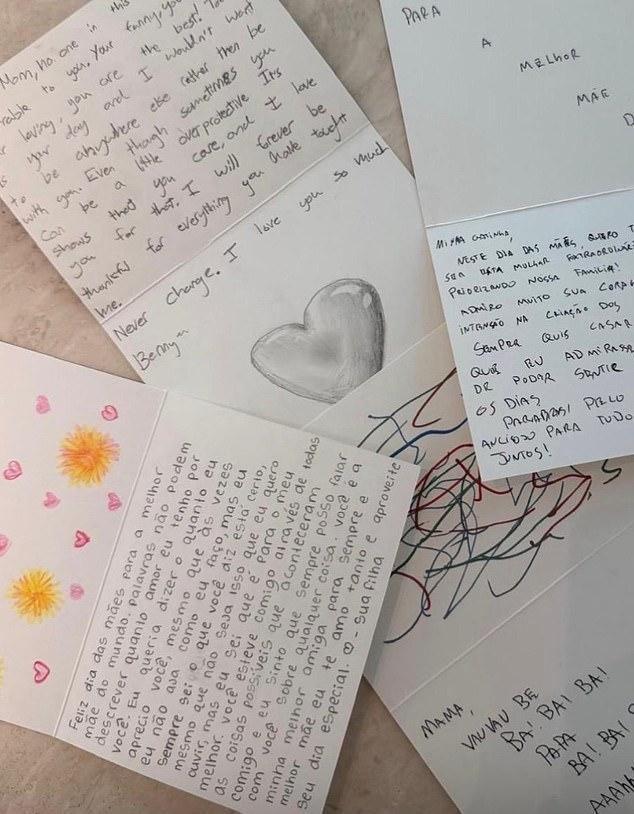 Mom, no one in this
rable to you. Your funny, you
loving, you are the best! Tod
is your day and I wouldn't want
to be anywhere else rather then be
with you. Even though sometimes you
can be a little overprotective Its
shows that you care, and I love
you for that. I will forever be
thankful for everything you have taught
me.
Never change. I love you so much
Benny
PARA
A
MELHOR
MÃE
D
MINHA GATINHA,
NESTE DIA DAS MÃES, QUERO T
SER ESTA MULHER EXTRAORDINÁR
PRIORIZANDO NOSSA FAMÍLIA!
ADMIRO MUITO SUA CORAG
INTENSÃO NA CRIAÇÃO DOS
SEMPRE QUIS CASAR
QUE EU ADMIRASS
DE PODER SENTIR
OS DIAS
PARABÉNS! PELO
ANCIOSO PARA TUDO
JUNTOS!
Feliz dia das mães para a melhor
mãe do mundo. Palavras não podem
descrever quanto amor eu tenho por
você. Eu queria dizer o quanto eu
aprecio você, mesmo que às vezes
eu não aja como eu faço, mas eu
sempre sei o que você diz está certo,
mesmo que não seja isso que eu quero
ouvir, mas eu sei que é Para o meu
melhor. Você esteve comigo através de todas
as coisas possíveis que aconteceram
comigo e eu sinto que sempre posso falar
com você sobre qualquer coisa. Você é a
minha melhor amiga para sempre e a
melhor mãe eu te amo tanto e aproveite
seu dia especial. ♡ - Sua filha
MAMA,
VAUVAU BE
BA! BA! BA!
PAPA
BA! BA!
AAAMA